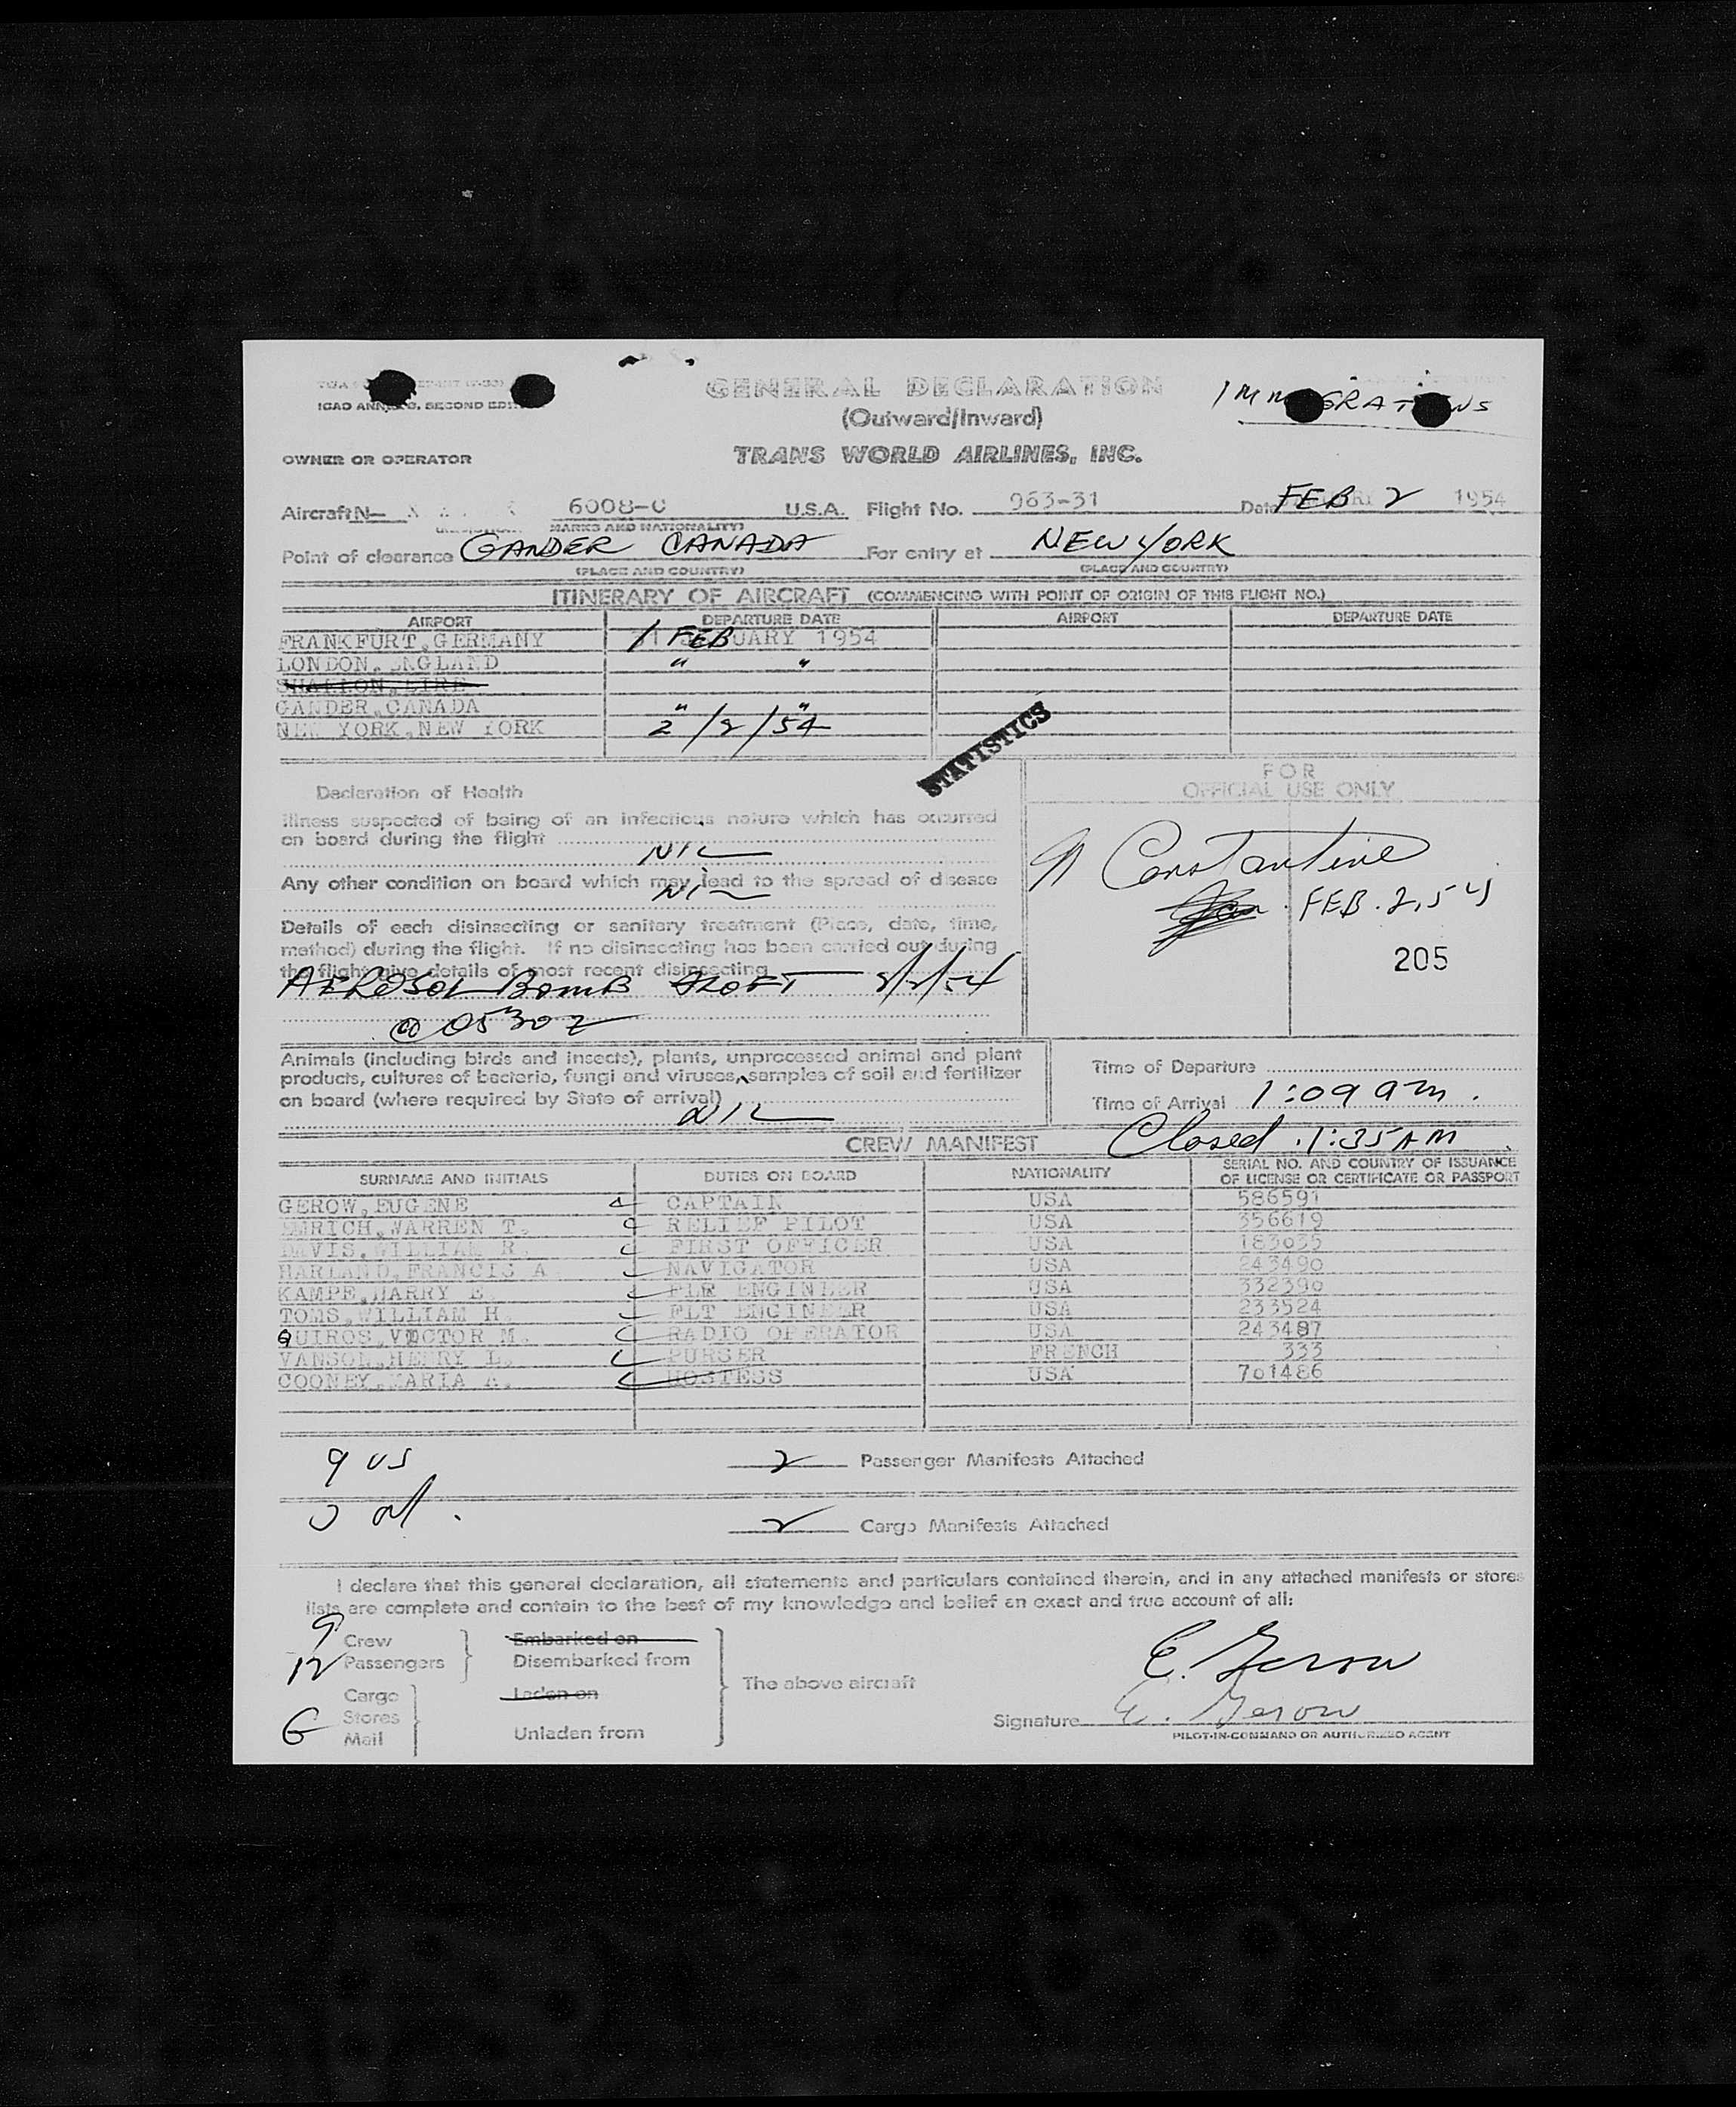 GENERAL DECLARATION
(Outward/Inward)
TRANS WORLD AIRLINES, INC.
OWNER OR OPERATOR
Aircraft N- 6008-C U.S.A. Flight No. 963-31 Date FEB 2 1954
(MARKS AND NATIONALITY)
Point of clearance GANDER CANADA For entry at NEW YORK
(PLACE AND COUNTRY) (PLACE AND COUNTRY)
ITINERARY OF AIRCRAFT (COMMENCING WITH POINT OF ORIGIN OF THIS FLIGHT NO.)
AIRPORT DEPARTURE DATE AIRPORT DEPARTURE DATE
FRANKFURT, GERMANY 1 FEB 1954
LONDON, ENGLAND " "
SHANNON, EIRE
GANDER, CANADA " "
NEW YORK, NEW YORK 2/2/54
STATISTICS
FOR
OFFICIAL USE ONLY
Declaration of Health
Illness suspected of being of an infectious nature which has occurred
on board during the flight
NIL
Any other condition on board which may lead to the spread of disease
NIL
Constantine
FEB. 2, 54
205
Details of each disinsecting or sanitary treatment (Place, date, time,
method) during the flight. If no disinsecting has been carried out during
the flight give details of most recent disinsecting
AEROSOL BOMB 2/2/54
@ 0530Z
Animals (including birds and insects), plants, unprocessed animal and plant
products, cultures of bacteria, fungi and viruses, samples of soil and fertilizer
on board (where required by State of arrival)
NIL
Time of Departure
Time of Arrival 1:09 am.
Closed 1:35 AM
CREW MANIFEST
SURNAME AND INITIALS DUTIES ON BOARD NATIONALITY SERIAL NO. AND COUNTRY OF ISSUANCE OF LICENSE OR CERTIFICATE OR PASSPORT
GEROW, EUGENE CAPTAIN USA 586591
WARREN T. RELIEF PILOT USA 356619
DAVIS, WILLIAM R. FIRST OFFICER USA 183035
HARLAND, FRANCIS A NAVIGATOR USA 243490
KAMPE, HARRY E. FLT ENGINEER USA 332390
TOMS, WILLIAM H. FLT ENGINEER USA 233524
QUIROS, VICTOR M. RADIO OPERATOR USA 243487
VANSON, HENRY L. PURSER FRENCH 333
COONEY, MARIA A. HOSTESS USA 701486
9 US
2 Passenger Manifests Attached
2 Cargo Manifests Attached
I declare that this general declaration, all statements and particulars contained therein, and in any attached manifests or stores
lists are complete and contain to the best of my knowledge and belief an exact and true account of all:
9 Crew Embarked on
12 Passengers Disembarked from
The above aircraft
Cargo Laden on
Stores
Mail Unladen from
E. Gerow
Signature E. Gerow
PILOT-IN-COMMAND OR AUTHORIZED AGENT